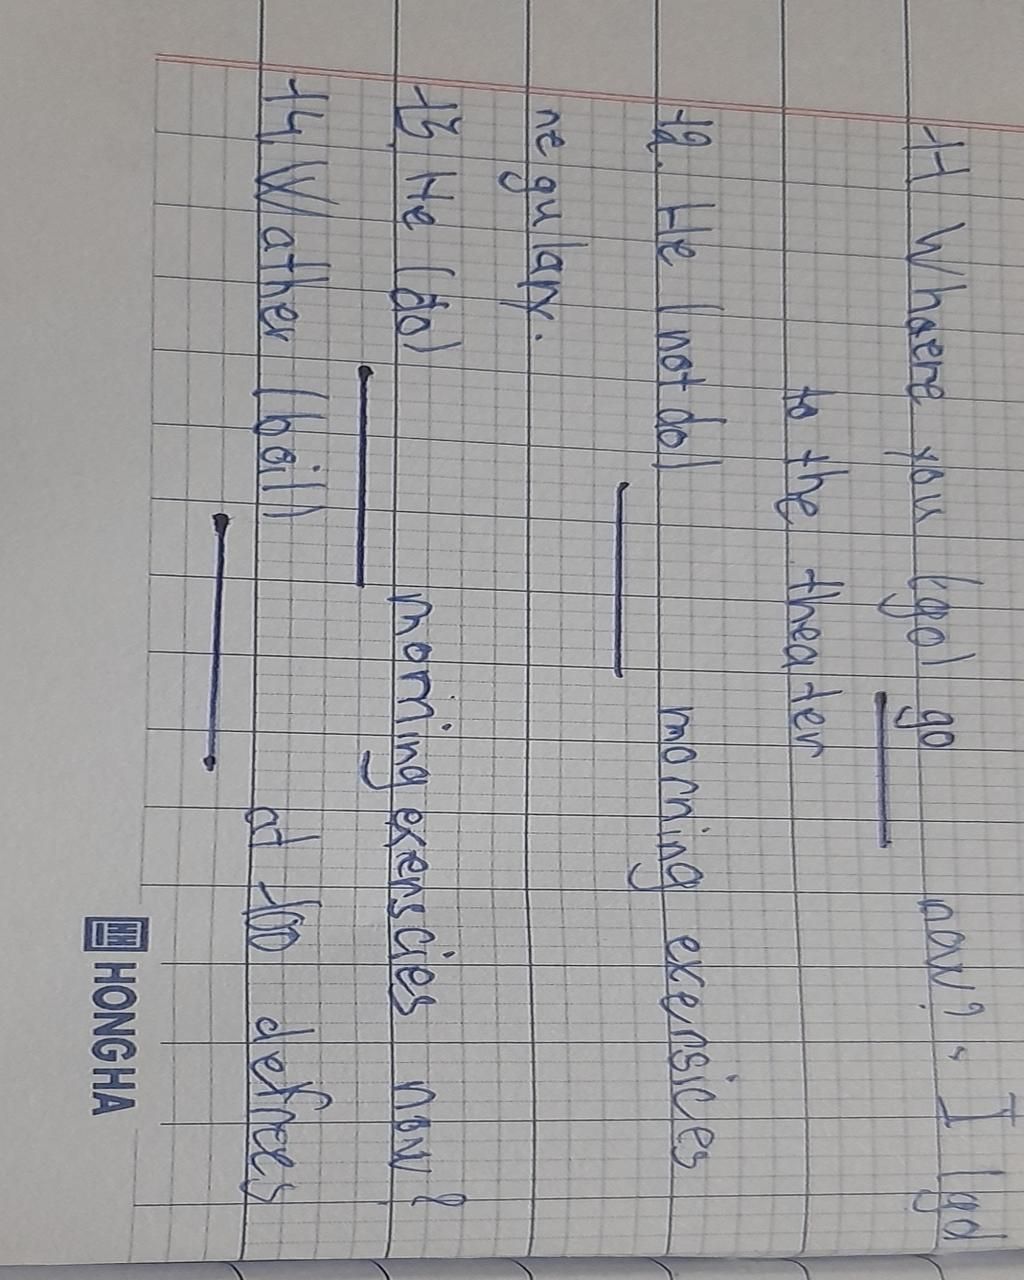 11 Whaere you (go) go now? , I (go)
to the theater
12. He (not do) morning exersices
regulary.
13 He (do) morning exerscies now?
14, Wather (boil) at 100 defrees
HH HONG HA